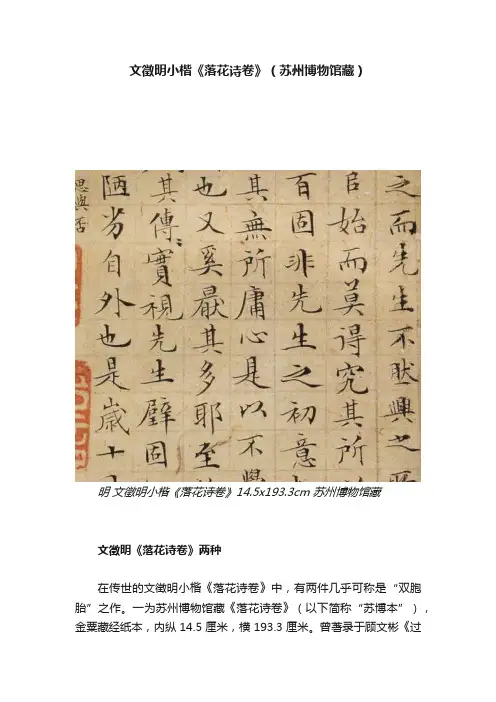 文徵明小楷《落花诗卷》(苏州博物馆藏)
之而先生不肰興之
㠯始而莫得究其所
百固非先生之初意
其無所庸心是以不
也又奚厭其多耶至
其傳實視先生璧固
陋劣自外也是歲十
與否
明 文徵明小楷《落花诗卷》14.5x193.3cm 苏州博物馆藏
文徵明《落花诗卷》两种
在传世的文徵明小楷《落花诗卷》中,有两件几乎可称是“双胞
胎”之作。一为苏州博物馆藏《落花诗卷》(以下简称“苏博本”),
金粟藏经纸本,内纵14.5厘米,横193.3厘米。曾著录于顾文彬《过